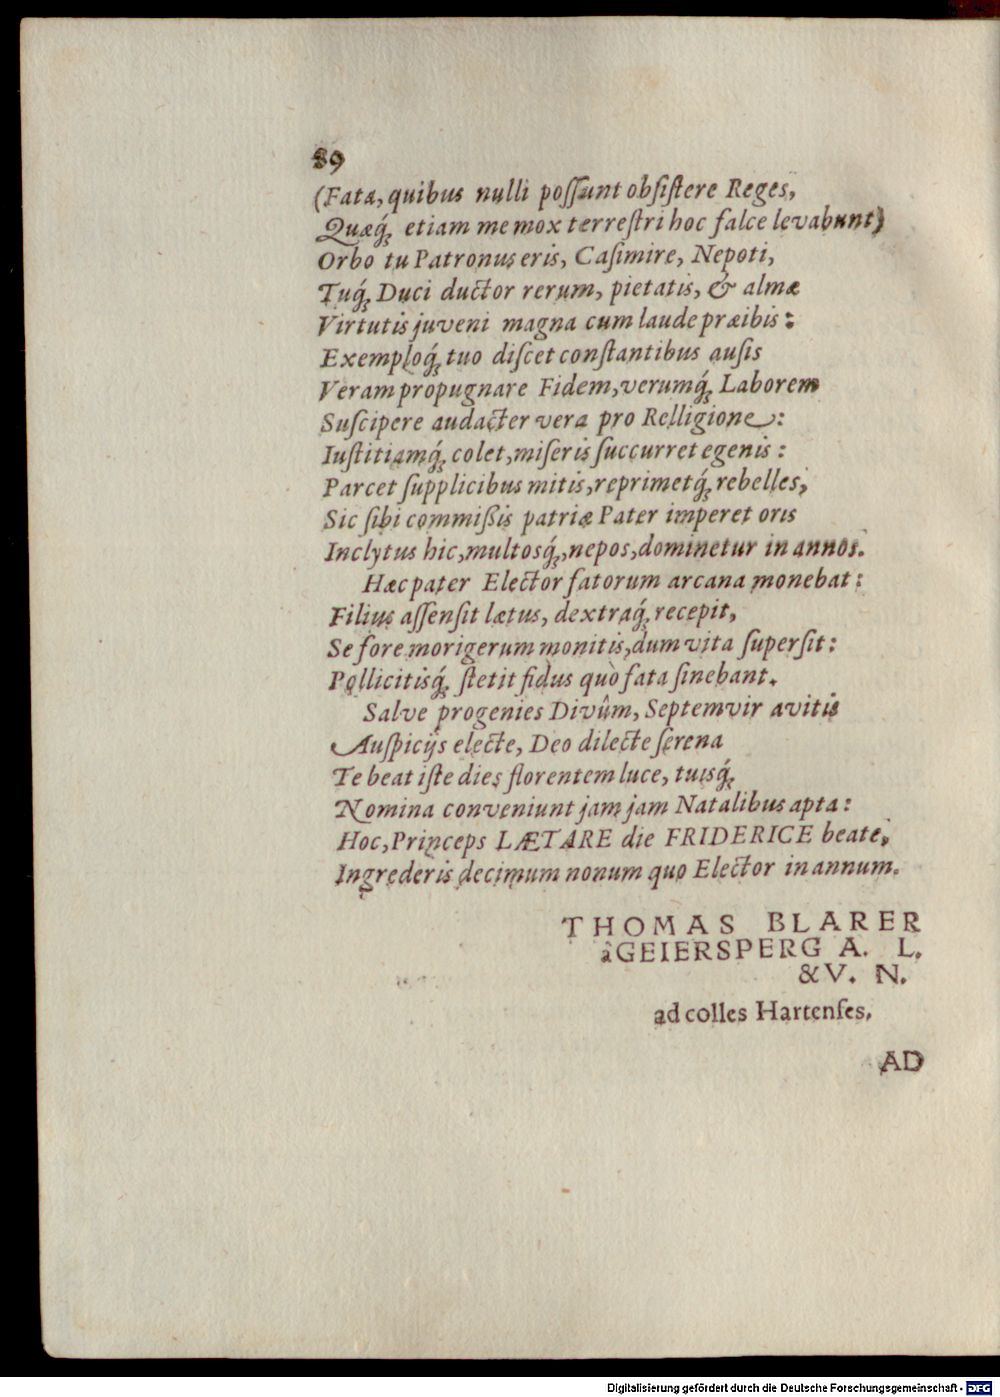 89
(Fata, quibus nulli poſſunt obſiſtere Reges,
Quæq́; etiam me mox terreſtri hoc falce levabunt)
Orbo tu Patronus eris, Caſimire, Nepoti,
Tuq́; Duci ductor rerum, pietatis, & almæ
Virtutis juveni magna cum laude præibis:
Exemploq́; tuo diſcet conſtantibus auſis
Veram propugnare Fidem, verumq́; Laborem
Suſcipere audacter vera pro Relligione:
Iuſtitiamq́; colet, miſeris ſuccurret egenis:
Parcet ſupplicibus mitis, reprimetq́; rebelles,
Sic ſibi commißis patriæ Pater imperet oris
Inclytus hic, multosq́;, nepos, dominetur in annos.
Hæc pater Elector fatorum arcana monebat:
Filius aſſenſit lætus, dextraq́; recepit,
Se fore morigerum monitis, dum vita ſuperſit:
Pollicitisq́; ſtetit fidus quò fata ſinebant.
Salve progenies Divûm, Septemvir avitis
Auſpicijs electe, Deo dilecte ſerena
Te beat iſte dies florentem luce, tuisq́;
Nomina conveniunt jam jam Natalibus apta:
Hoc, Princeps LÆTARE die FRIDERICE beate,
Ingrederis decimum nonum quo Elector in annum.
THOMAS BLARER
â GEIERSPERG A. L.
& V. N.
ad colles Hartenſes.
AD
Digitalisierung gefördert durch die Deutsche Forschungsgemeinschaft - DFG